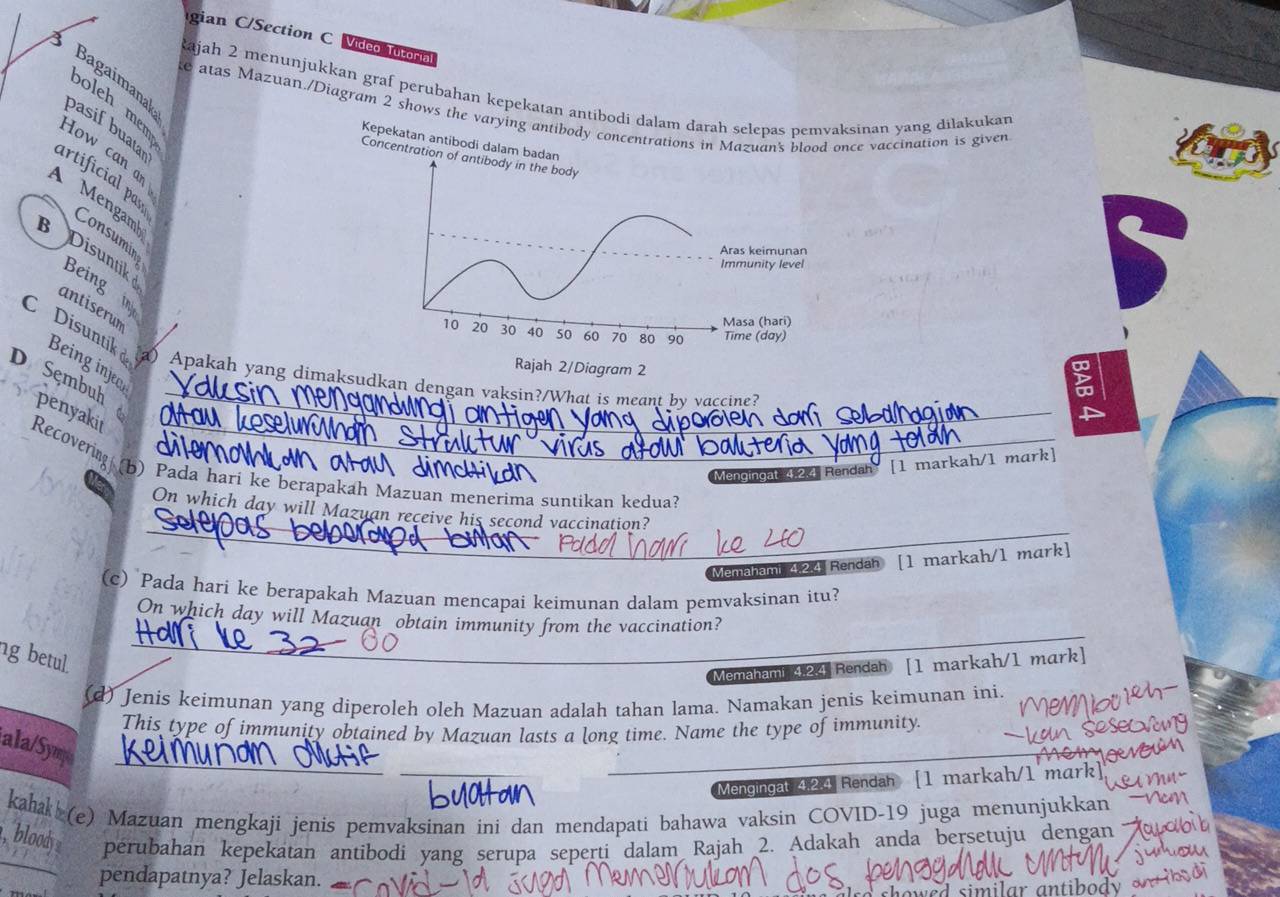 gian C/Section C Video Tutorial
Rajah 2 menunjukkan graf perubahan kepekatan antibodi dalam darah selepas pemvaksinan yang dilakukan
ke atas Mazuan./Diagram 2 shows the varying antibody concentrations in Mazuan's blood once vaccination is given.
Kepekatan antibodi dalam badan
Concentration of antibody in the body
Aras keimunan
Immunity level
10 20 30 40 50 60 70 80 90
Masa (hari)
Time (day)
Rajah 2/Diagram 2
(a) Apakah yang dimaksudkan dengan vaksin?/What is meant by vaccine?
Vaksin mengandungi antigen yang diperolen dari sebahagian
atau keseluruhan struktur virus atau bakteria yang telah
dilemahkan atau dimatikan
Mengingat 4.2.4 Rendah [1 markah/1 mark]
(b) Pada hari ke berapakah Mazuan menerima suntikan kedua?
On which day will Mazuan receive his second vaccination?
Selepas beberapa bulan pada hari ke 40
Memahami 4.2.4 Rendah [1 markah/1 mark]
(c) Pada hari ke berapakah Mazuan mencapai keimunan dalam pemvaksinan itu?
On which day will Mazuan obtain immunity from the vaccination?
Hari ke 32 60
Memahami 4.2.4 Rendah [1 markah/1 mark]
(d) Jenis keimunan yang diperoleh oleh Mazuan adalah tahan lama. Namakan jenis keimunan ini.
This type of immunity obtained by Mazuan lasts a long time. Name the type of immunity.
Keimunan aktif
buatan
Mengingat 4.2.4 Rendah [1 markah/1 mark]
(e) Mazuan mengkaji jenis pemvaksinan ini dan mendapati bahawa vaksin COVID-19 juga menunjukkan
perubahan kepekatan antibodi yang serupa seperti dalam Rajah 2. Adakah anda bersetuju dengan
pendapatnya? Jelaskan. Covid-19 juga memerlukan dos penggalak untuk
membolehkan
seseorang
jumlah
antibodi
also showed similar antibody
BAB 4
3 Bagaimanakah
boleh
pasif buatan?
How can an
artificial
A Mengambil
Consuming
B Disuntik
Being
antiserum
C Disuntik
Being
D Sembuh
penyakit
Recovering
ng betul.
kahak
bloody
S